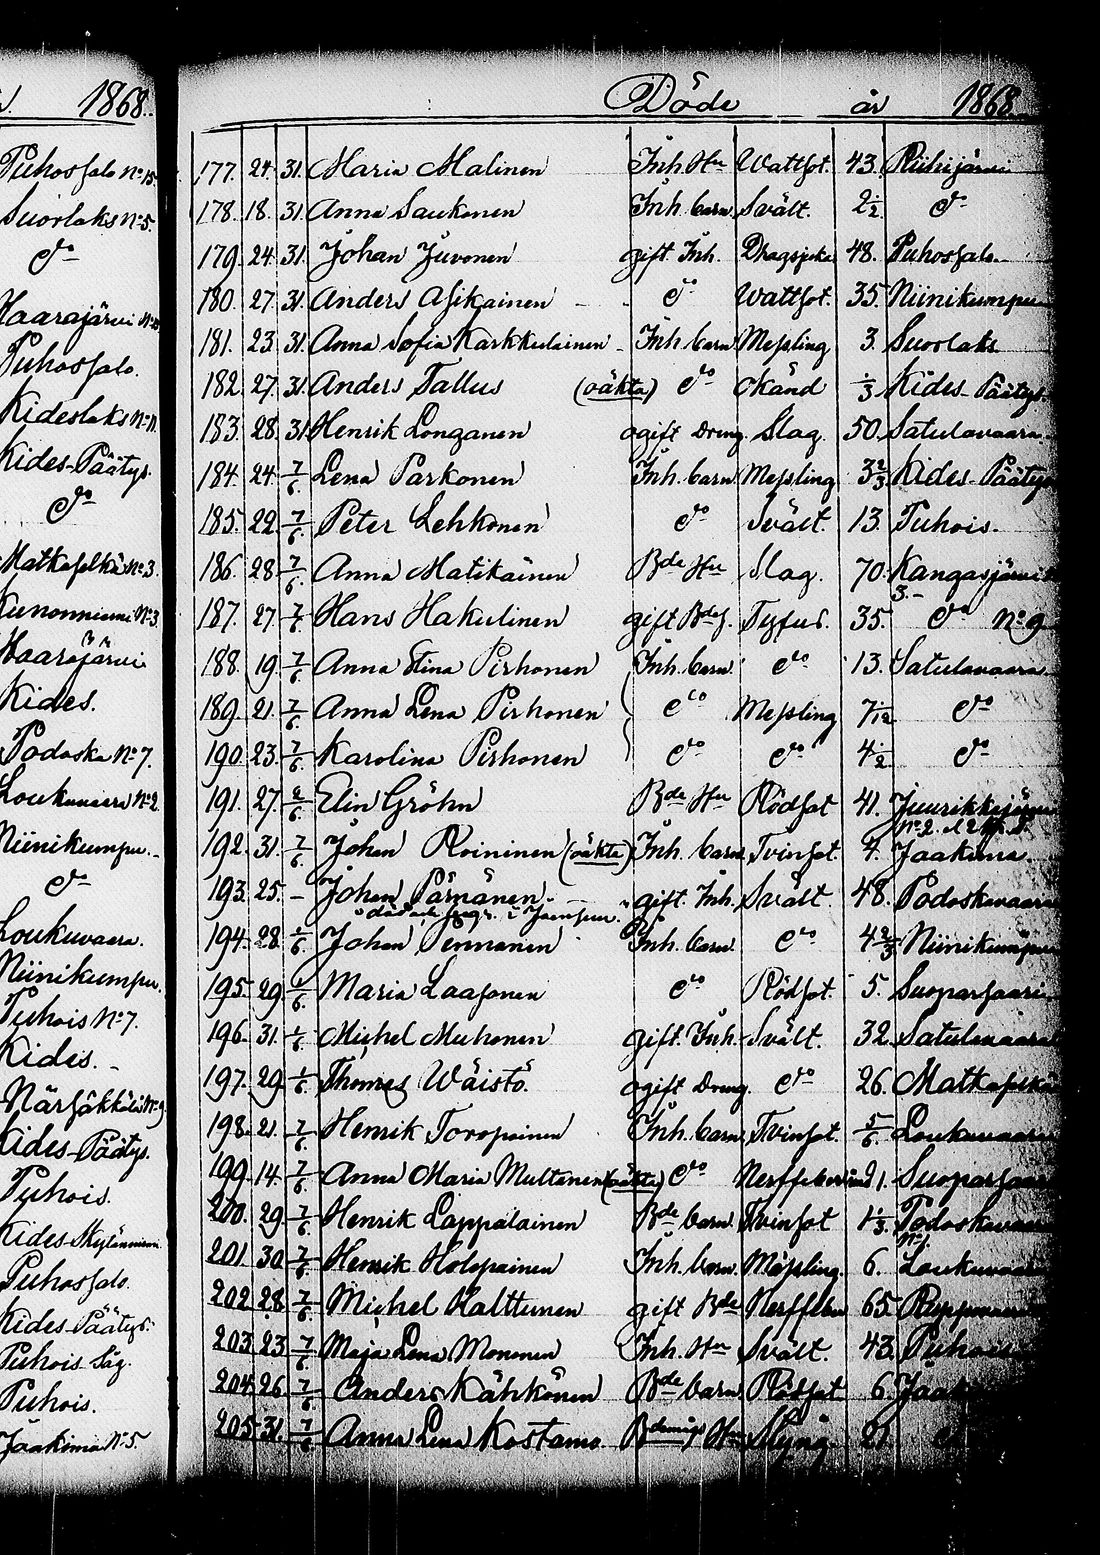 1868.
Puhossalo No 15.
Suorlaks No 5.
do
Haarajärvi
Puhossalo.
Kideslaks No 11.
Kides-Päätys.
do
Matkaselkä No 3.
Kunonniemi No 3.
Haarajärvi
Kides.
Podoska No 7.
Loukuvaara No 2.
Niinikumpu.
do
Loukuvaara.
Niinikumpu.
Puhois No 7.
Kides.
Närsäkkälä No 9
Kides-Päätys.
Puhois.
Kides
Puhossalo.
Kides-Päätys.
Puhois Säg.
Puhois.
Jaakima No 5.
Döde år 1868.
177. 24. 31. Maria Malinen Inh. Hu Wattsot. 43. Riihijärvi
178. 18. 31. Anna Saukonen Inh. barn Svält. 2 1/2 do
179. 24. 31. Johan Juvonen gift Inh. Dragsjuka 48. Puhossalo.
180. 27. 31. Anders Asikainen do Wattsot. 35. Niinikumpu
181. 23. 31. Anna Sofia Karkkulainen Inh. barn Messling 3. Suorlaks
182. 27. 31. Anders Tallus (oäkta) do okänd 1/3 Kides-Päätys.
183. 28. 31. Henrik Longanen ogift Dreng. Slag. 50. Satulavaara.
184. 24. 7/6 Lena Parkonen Inh. barn Messling 3 2/3 Kides-Päätys
185. 22. 7/6 Peter Lehkonen do Svält. 13. Puhois.
186. 28. 7/6 Anna Matikainen Bde Hu Slag. 70. Kangasjärvi
3.-
187. 27. 7/6 Hans Hakulinen gift Bdes. Tyfus. 35. do No 9
188. 19. 7/6 Anna Stina Pirhonen Inh. barn. do 13. Satulavaara
189. 21. 7/6 Anna Lena Pirhonen do Messling 7/12 do
190. 23. 7/6 Karolina Pirhonen do do 4 1/2 do
191. 27. 7/6 Elin Gröhn Bde Hu Rödsot 41. Juurikkajärvi
No 2.
192. 31. 7/6 Johan Roininen (oäkta) Inh. barn Tvinsot. 4. Jaakima.
193. 25. - Johan Pärnänen. gift Inh. Svält. 48. Podoskavaara
i Joensuu.
194. 28. 1/6 Johan Pennanen Inh. barn. do 4 2/3 Niinikumpu
195. 29. 1/6 Maria Laasonen do Rödsot. 5. Suoparsaari
196. 31. 1/6 Michel Muhonen gift Inh. Svält. 32. Satulavaara
197. 29. 1/6 Thomas Wäistö. ogift Dreng. do 26. Matkaselkä
198. 21. 7/6 Henrik Toropainen Inh. barn. Tvinsot. 5/6 Loukuvaara
199. 14. 7/6 Anna Maria Multanen (oäkta) do 21. Suoparsaari
200. 29. 7/6 Henrik Lappalainen Bde barn. Tvinsot 1 1/3 Podoskavaara
201. 30. 7/6 Henrik Holopainen Inh. barn. Mässling. 6. Loukuvaara
202. 28. 7/6 Michel Halttunen gift Bde Nerffeber 65.
203. 23. 7/6 Maja Lena Mononen Inh. Hu Svält. 43. Puhois
204. 26. 7/6 Anders Kähkönen Bde barn Rödsot 6.
205. 31. 7/6 Anna Lena Kostamo. Hu 21